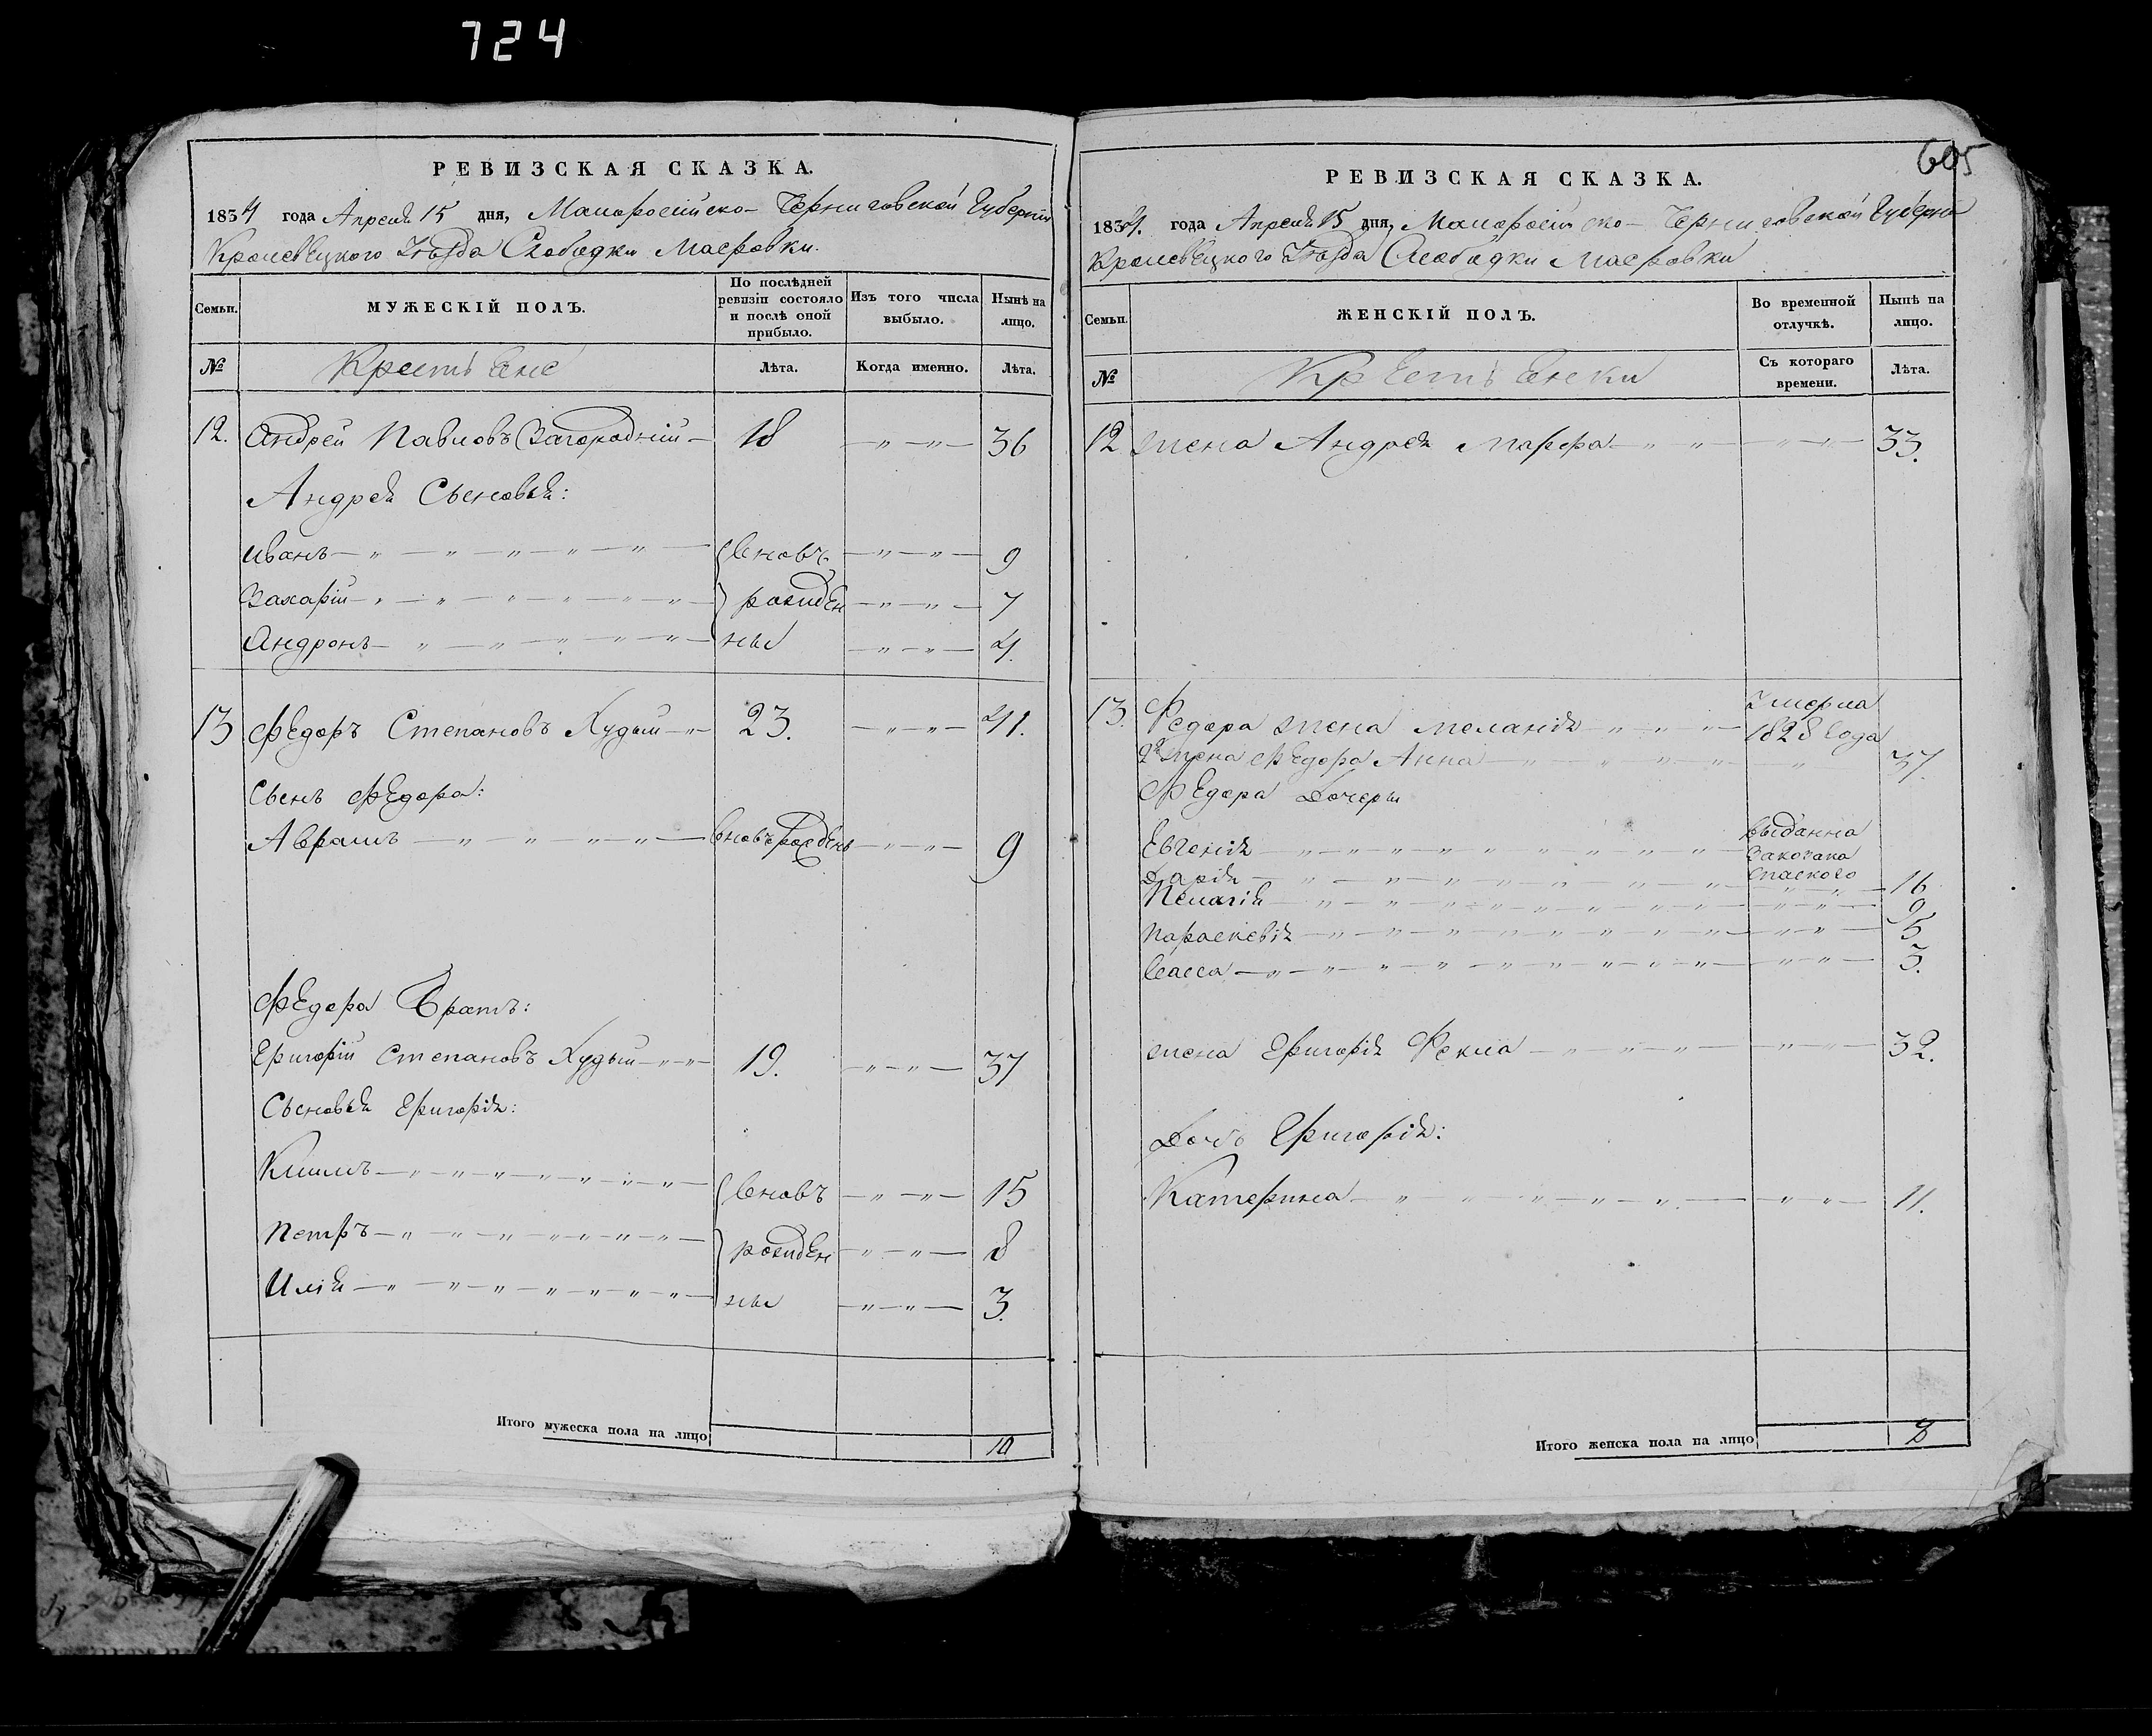 724
РЕВИЗСКАЯ СКАЗКА.
1834 года Апреля 15 дня, Малоросійско- Черниговской Губерніи
Кролевецкого Уѣзда Слободки Масровки.
Семьи.
МУЖЕСКІЙ ПОЛЪ.
По послѣдней ревизіи состояло и послѣ оной прибыло.
Изъ того числа выбыло.
Нынѣ на лицо.
№
Крестьяне
Лѣта.
Когда именно.
Лѣта.
12. Андрей Павловъ Загородній — 18 — „ — „ — 36
Андрея Сыновья:
Иванъ — вновь — „ — „ — 9
Захарій — рожден — „ — „ — 7
Андронъ — ны — „ — „ — 4.
13 Федоръ Степановъ Худый — 23. — „ — „ — 41.
Сынъ Федора:
Аврамъ — вновь рожденъ — „ — „ — 9
Федора Братъ:
Григорій Степановъ Худый — 19. — „ — „ — 37
Сыновья Григорія:
Климъ — вновь — „ — „ — 15
Петръ — рожден — „ — „ — 8
Илія — ны — „ — „ — 3.
Итого мужеска пола на лицо 10
605
РЕВИЗСКАЯ СКАЗКА.
1834. года Апреля 15 дня, Малоросійско- Черниговской Губерніи
Кролевецкого Уѣзда Слободки Масровки
Семьи.
ЖЕНСКІЙ ПОЛЪ.
Во временной отлучкѣ.
Нынѣ на лицо.
№
Крестьянки
Съ котораго времени.
Лѣта.
12 жена Андрея Марфа — „ — „ — 33.
13. Федора жена Меланія — умерла 1828 года
2я жена Федора Анна — „ — 37.
Федора Дочери
Евгенія — выданна за козака Спаского
Дарія — „ — „ — 16
Пелагія — „ — „ — 9
Параскевія — „ — „ — 5
Васса — „ — „ — 3.
жена Григорія Фекла — „ — „ — 32.
Дочь Григорія:
Катерина — „ — „ — 11.
Итого женска пола на лицо 8